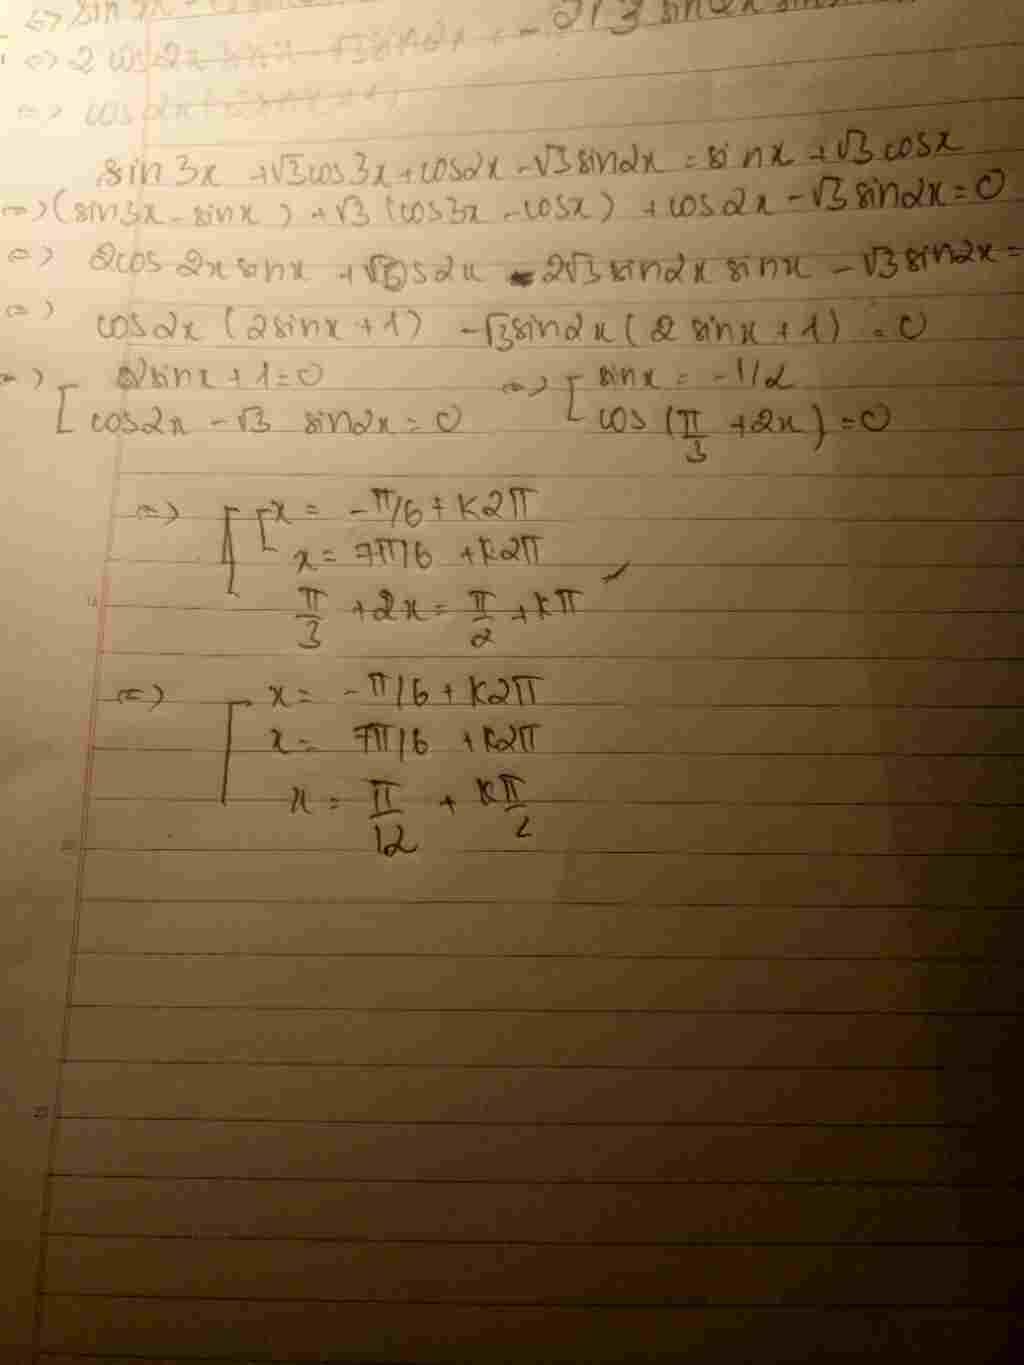 ⇔ 2 cos 2x sinx - √3 sin2x + -2√3 sin2x sin
⇔ cos 2x
sin 3x + √3 cos 3x + cos2x - √3 sin2x = sin x + √3 cos x
⇔ (sin3x - sinx) + √3 (cos3x - cosx) + cos2x - √3 sin2x = 0
⇔ 2cos 2x sinx + cos2x - 2√3 sin2x sinx - √3 sin2x =
⇔ cos2x (2sinx + 1) - √3 sin2x (2 sinx + 1) = 0
⇔ [ 2sinx + 1 = 0 ⇔ [ sinx = -1/2
cos2x - √3 sin2x = 0 cos (π/3 + 2x) = 0
⇔ [ [ x = -π/6 + k2π
x = 7π/6 + k2π
π/3 + 2x = π/2 + kπ
⇔ [ x = -π/6 + k2π
x = 7π/6 + k2π
x = π/12 + kπ/2